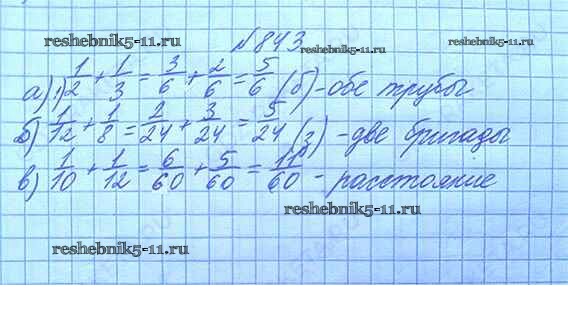 reshebnik5-11.ru
№843
reshebnik5-11.ru
а) 1) 1/2 + 1/3 = 3/6 + 2/6 = 5/6 (б) - обе трубы
б) 1/12 + 1/8 = 2/24 + 3/24 = 5/24 (з) - две бригады
в) 1/10 + 1/12 = 6/60 + 5/60 = 11/60 - расстояние
reshebnik5-11.ru
reshebnik5-11.ru